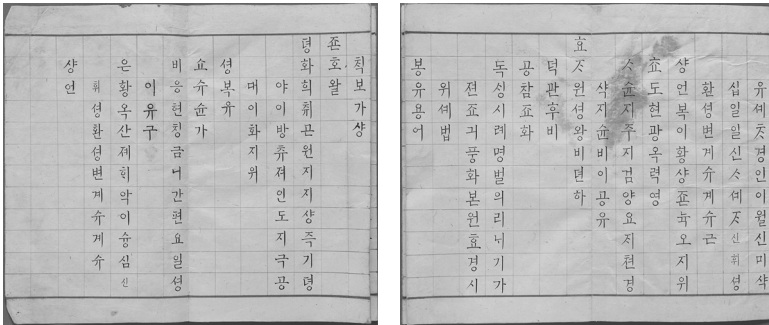 유셰ᄎᆞ경인이월신미삭
십일일신ᄉᆞ셰ᄌᆞ신휘셩
환셩변계슈계슈근
샹언복이황샹죤뉵오지위
효도현광옥력영
ᄉᆞ슌지주지검양요지천경
삭지슌비이공유
효ᄌᆞ원셩왕비뎐하
덕관후비
공참죠화
독셩시례명벌의리니기가
젼죠긔풍화본원효경시
위셰법
봉유용어
칙보가샹
죤호왈
명화희휘곤원지지샹즉기뎡
야이방츄져인도지극공
대이화지위
셩복유
쇼슈슌가
비응현칭금니간편요일셩
이유구
은황옥산졔히악이슝심신
휘셩환셩변계슈계슈
샹언